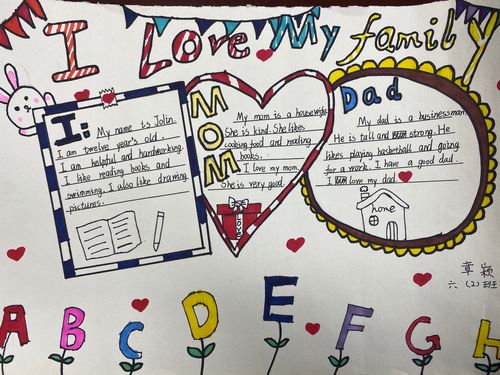 I Love My family
I: My name is Jolin.
I am twelve year's old.
I am helpful and hardworking.
I like reading books and
swimming. I also like drawing
pictures.
MOM
My mom is a housewife.
She is kind. She likes
cooking food and reading
books.
I love my mom.
She is very good.
Love
Dad
My dad is a businessman.
He is tall and strong. He
likes playing basketball and going
for a work. I have a good dad.
I love my dad.
home
章颖
六(2)班
A B C D E F G H